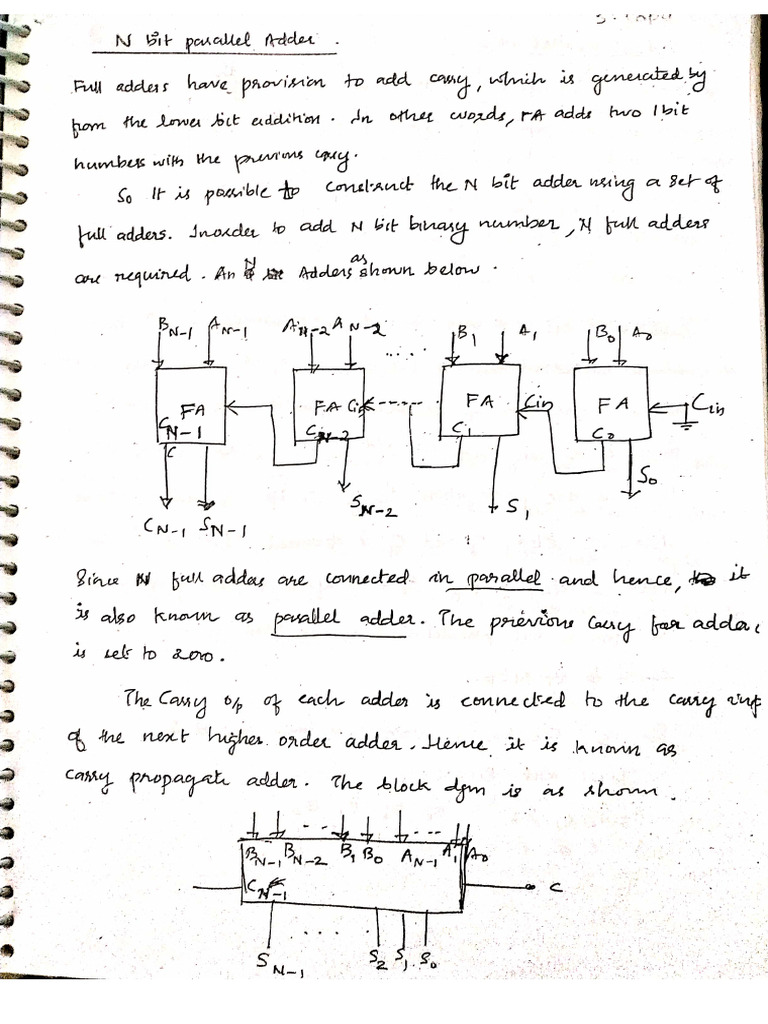 N bit parallel Adder.
Full adders have provision to add carry, which is generated by
from the lower bit addition. In other words, FA adds two 1 bit
numbers with the previous carry.
So It is possible to construct the N bit adder using a set of
full adders. Inorder to add N bit binary number, N full adders
are required. An N Adders as shown below.
B N-1 A N-1 A N-2 A N-2 .... B1 A1 B0 A0
FA FA Cin FA Cin FA Cin
C N-1 C N-2 C1 C0
C
S0
C N-1 S N-1 S N-2 S1
Since N full adders are connected in parallel and hence, it
is also known as parallel adder. The previous carry for adder
is set to zero.
The Carry o/p of each adder is connected to the carry inp
of the next higher order adder. Hence it is known as
carry propagate adder. The block dgm is as shown.
B N-1 B N-2 B1 B0 A N-1 A1 A0
C N-1 C
S N-1 .... S2 S1 S0